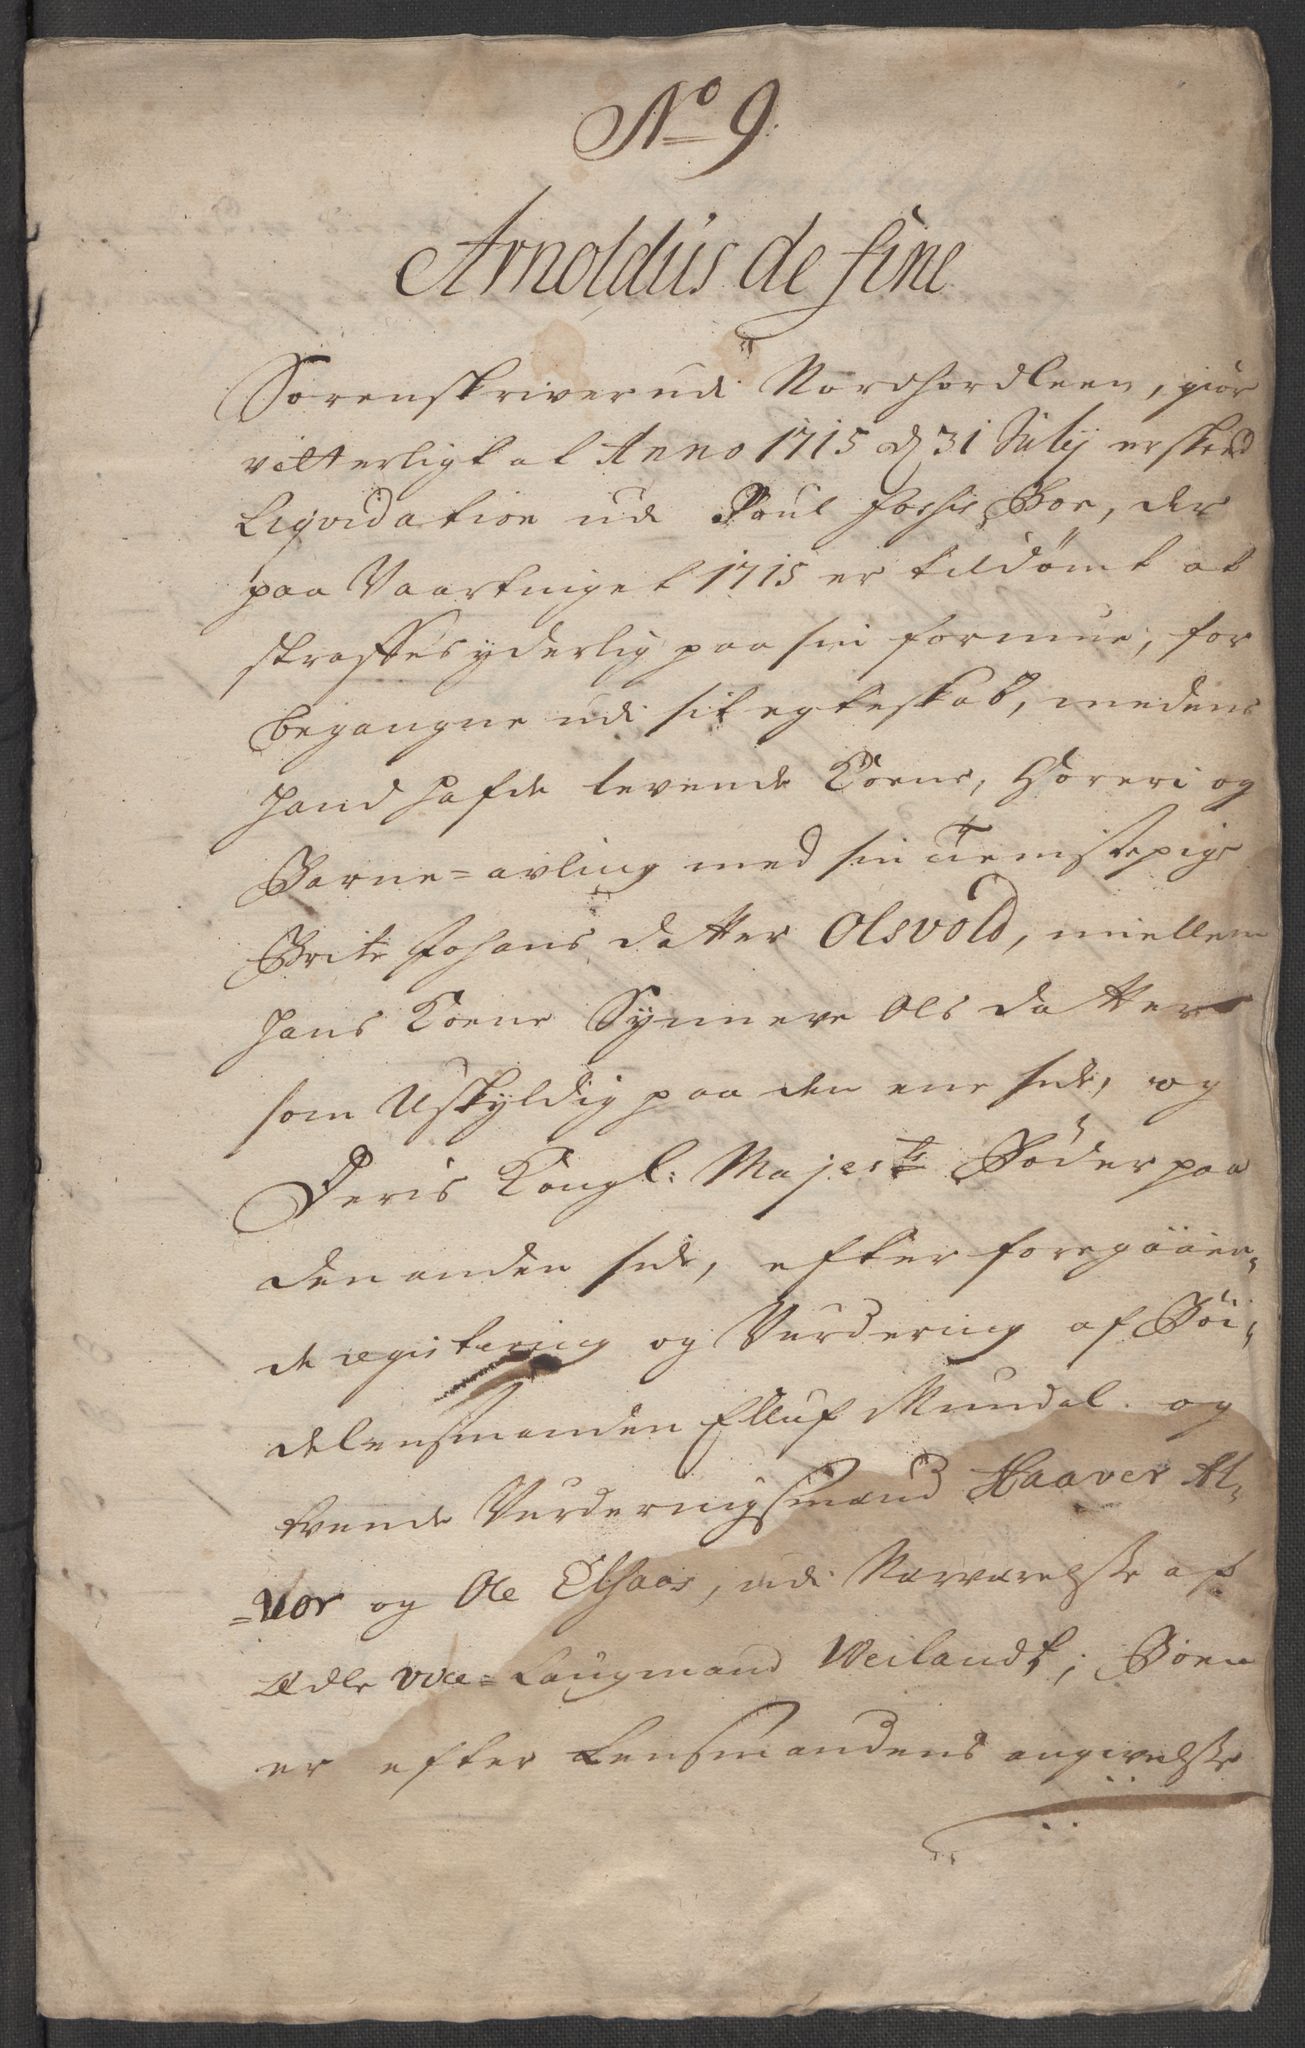 No 9
Arnoldus de fine
Sorenskriver udi Nordhordleen, giør
vitterligt at Anno 1715 d 31 Julij er skeed
Liqvidation udi Poul Fosses Boe, der
paa Vaartinget 1715 er tildømt at
straffes yderlig paa sin formue, for
begangne udi sit egteskab, medens
hand hafde levende Koene, Horeri og
Barne=avling med sin Tieniste pige
Brite Johans datter Olsvold, miellem
hans Koene Synneve Ols datter
som Uskyldig paa den ene side, og
Deris Kongl: Majestts Bøder paa
den anden side, efter foregaaen-
de registering og Vurdering af Bøi-
delensmanden Elluf Mundal og
tvende Vurderingsmænd Haaver Al-
=vor og Ole Elsaas, udi Nærværelse af
Ædle vice=Laugmand Weilandt; Boen
er efter Lensmandens angivelse